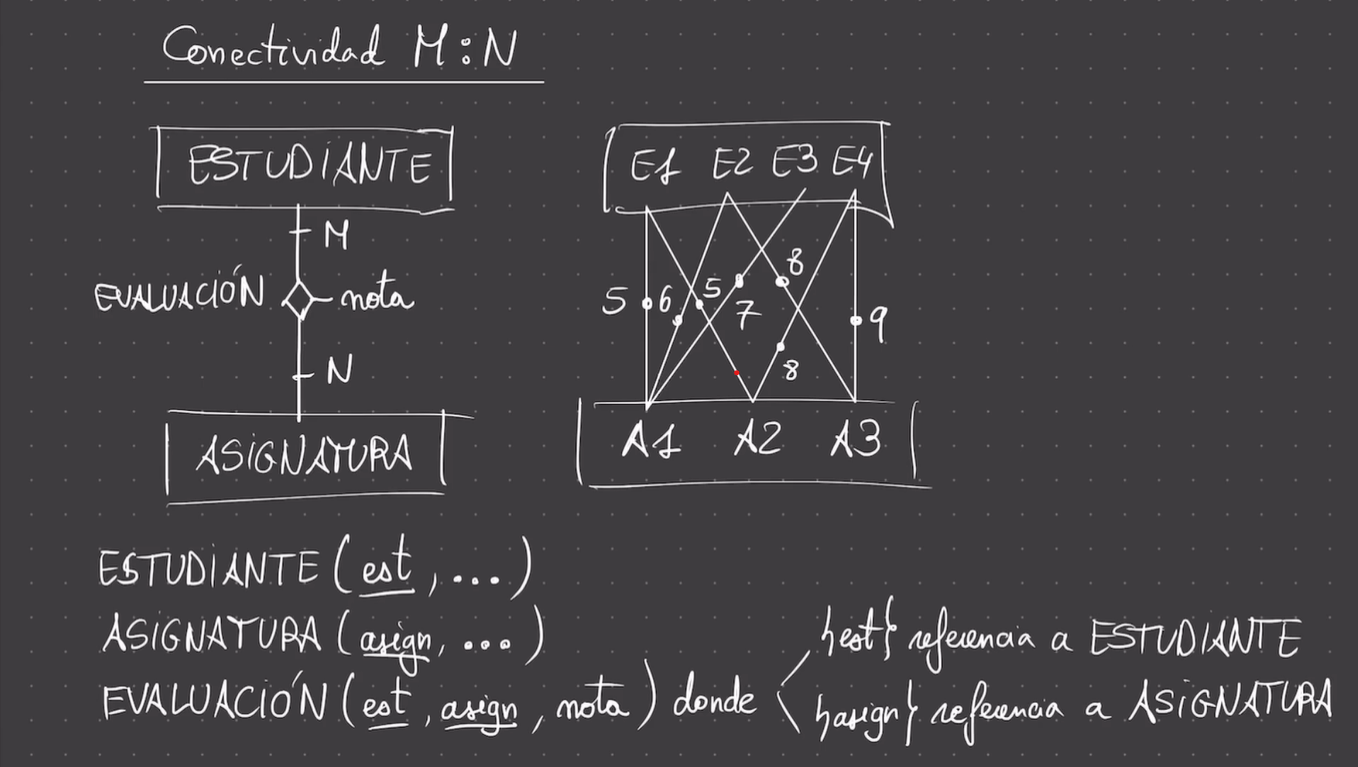 Conectividad M:N
ESTUDIANTE
M
EVALUACIÓN nota
N
ASIGNATURA
E1 E2 E3 E4
8
5 6 5 7 9
8
A1 A2 A3
ESTUDIANTE (est, ...)
ASIGNATURA (asign, ...)
EVALUACIÓN (est, asign, nota) donde
{est} referencia a ESTUDIANTE
{asign} referencia a ASIGNATURA